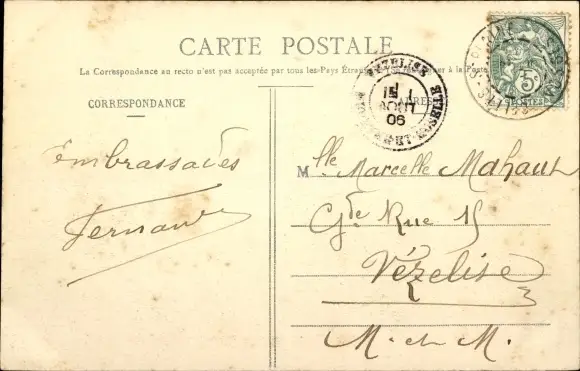 CARTE POSTALE
La Correspondance au recto n'est pas acceptée par tous les Pays
CORRESPONDANCE
VEZELISE
15
AOUT
06
MEURTHE-ET-MOSELLE
5c
POSTES
Embrassades
Fernand
Mlle Marcelle Mahaut
Gde Rue 15
Vézelise
M. et M.